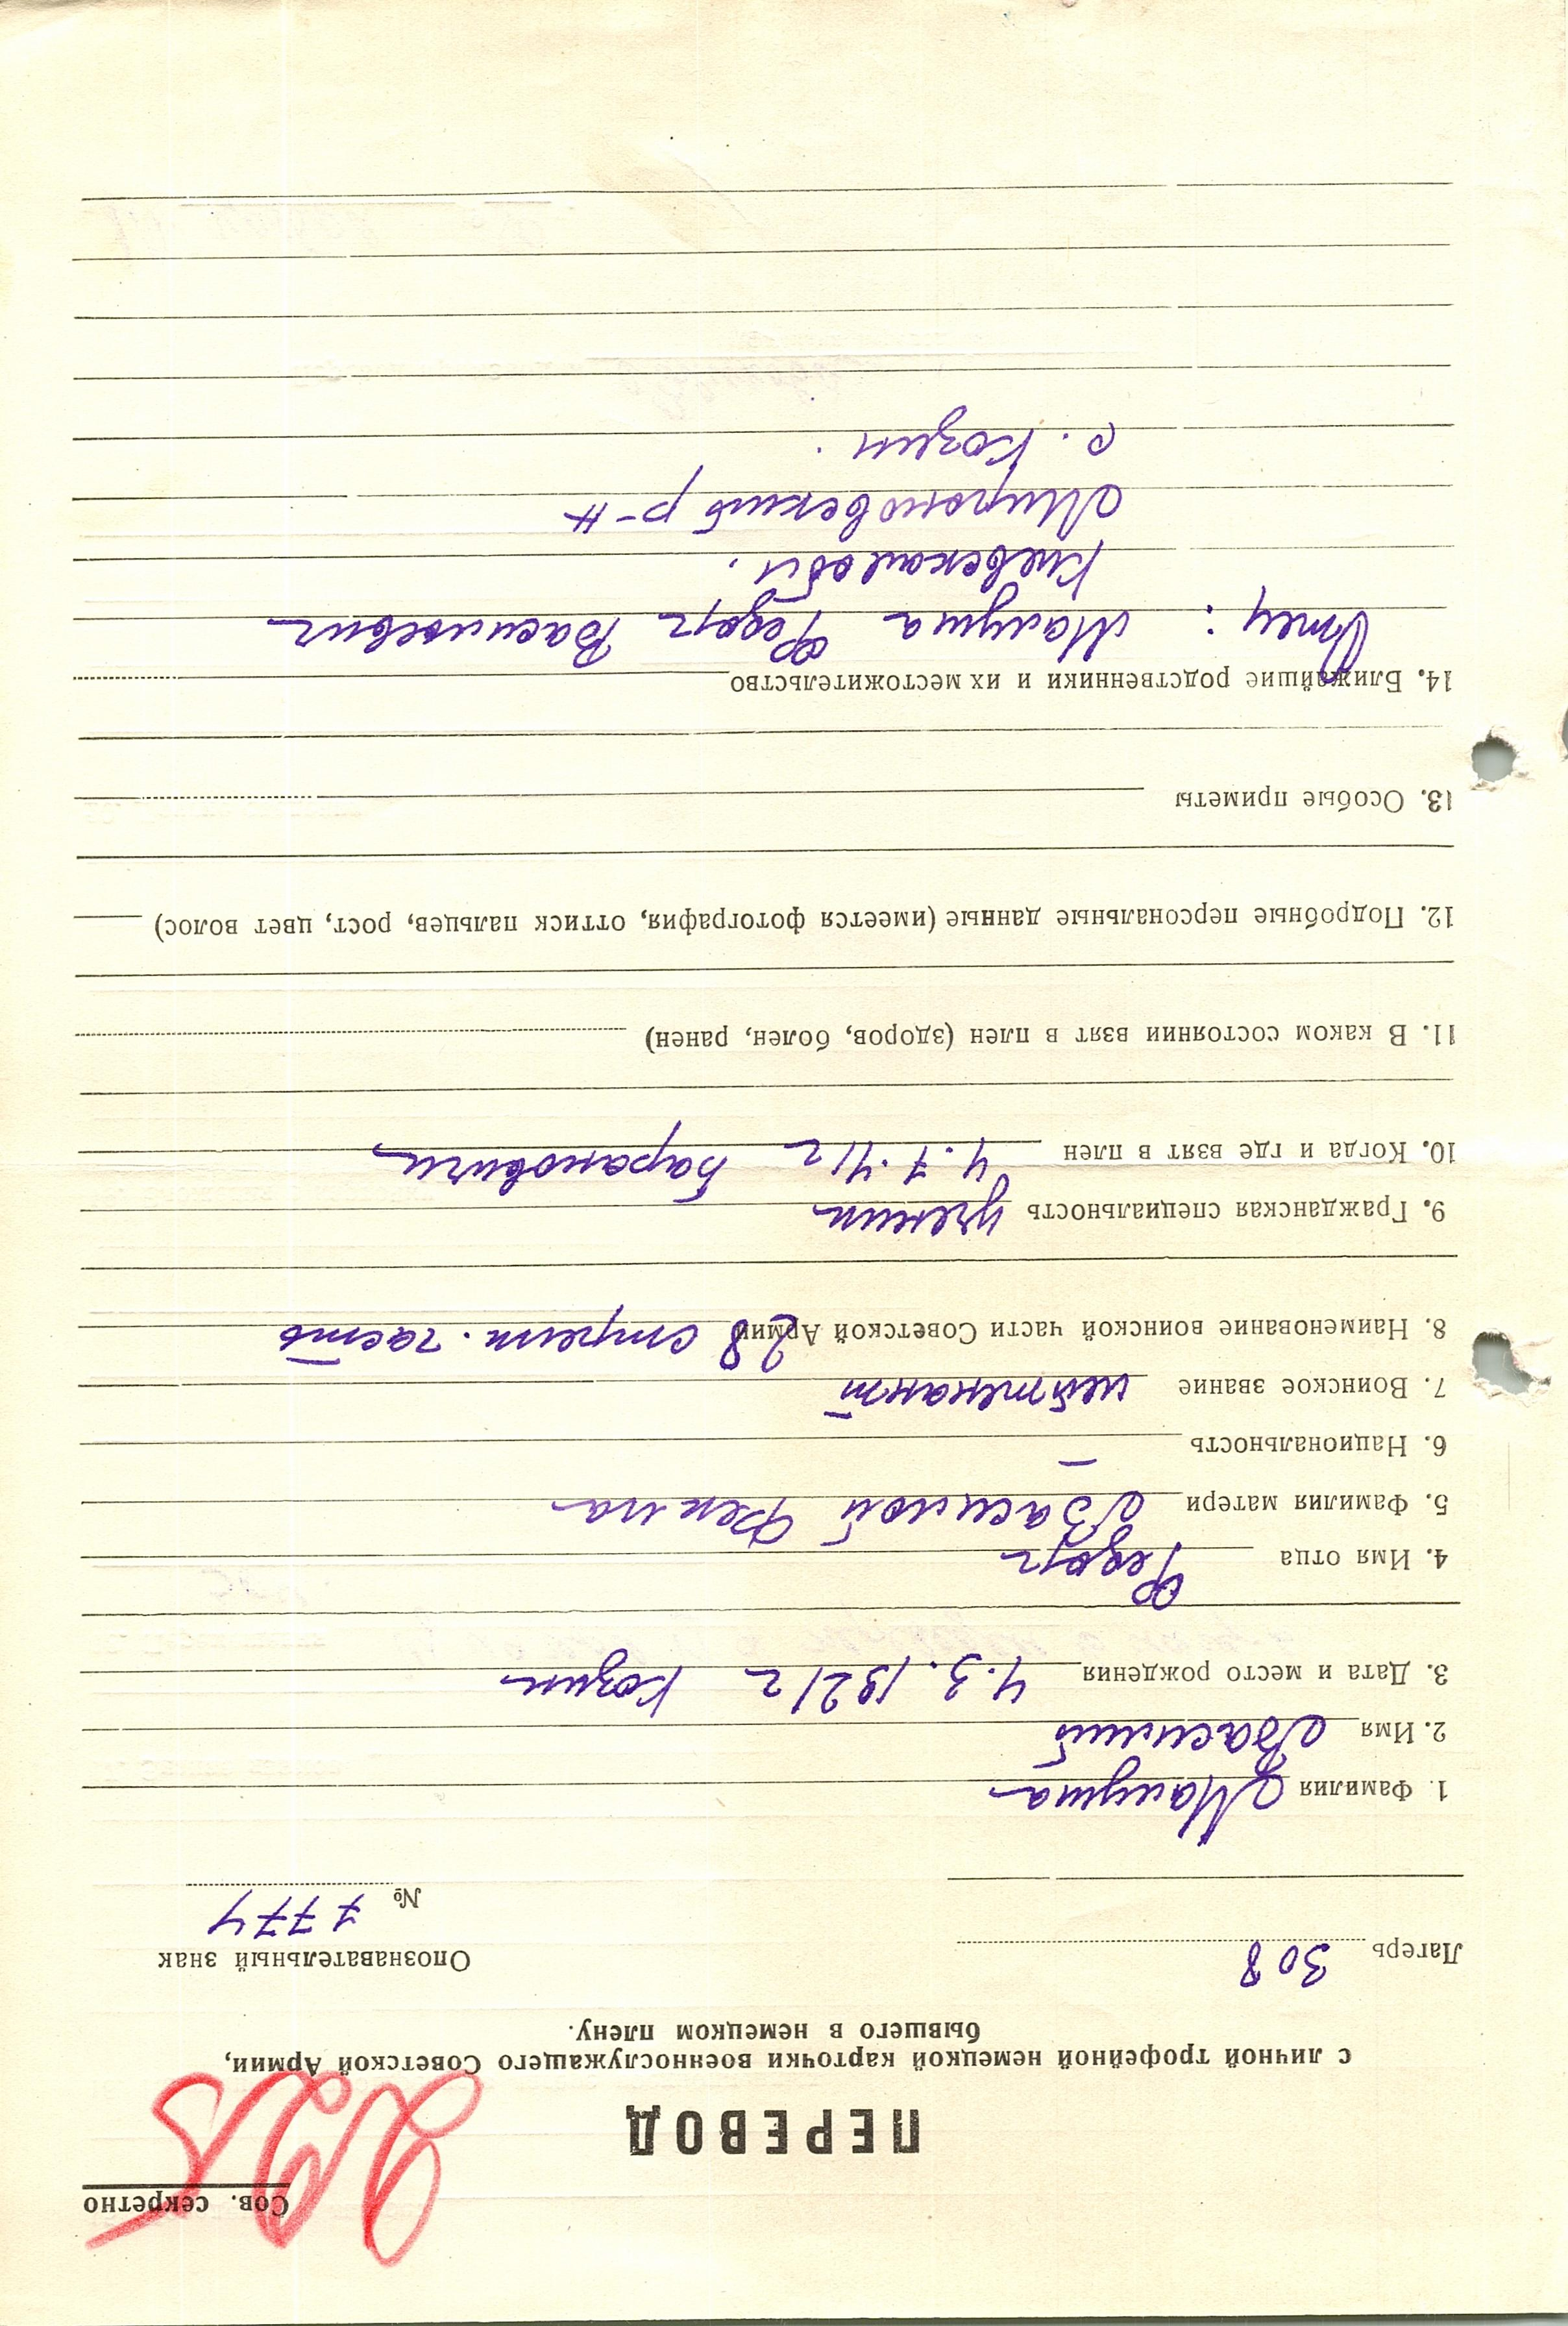 Сов. секретно
ПЕРЕВОД
с личной трофейной немецкой карточки военнослужащего Советской Армии,
бывшего в немецком плену.
Лагерь 308
Опознавательный знак
№ 7774
1. Фамилия Малуша
2. Имя Василий
3. Дата и место рождения 4.3.1921 г Козин
4. Имя отца Федор
5. Фамилия матери Василой Фекла
6. Национальность —
7. Воинское звание лейтенант
8. Наименование воинской части Советской Армии 28 стрелк. часть
9. Гражданская специальность ученик
10. Когда и где взят в плен 4.7.41 г Барановичи
11. В каком состоянии взят в плен (здоров, болен, ранен)
12. Подробные персональные данные (имеется фотография, оттиск пальцев, рост, цвет волос)
13. Особые приметы
14. Ближайшие родственники и их местожительство
Отец: Малуша Федор Васильевич
Киевская обл.
Мироновский р-н
с. Козин.